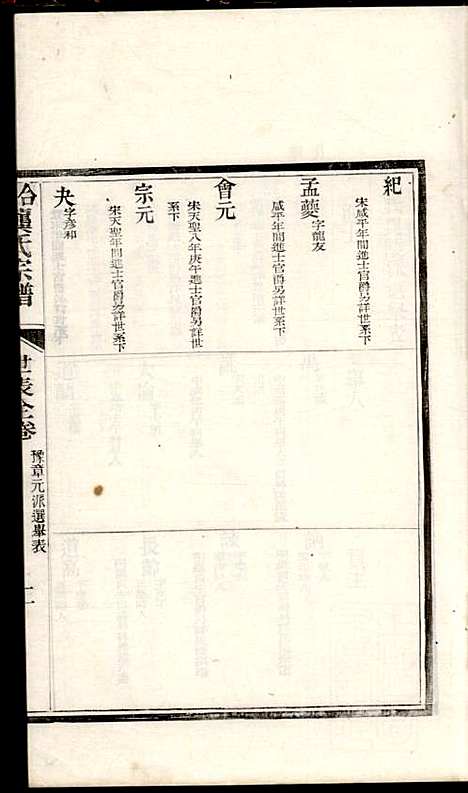 紀
宋咸平年間進士官爵另詳世系下
孟夔 字龍友
咸平年間進士官爵另詳世系下
會元
宋天聖八年庚午進士官爵另詳世
系下
宗元
宋天聖年間進士官爵另詳世系下
夬 字彥和
氏宗譜
世表全卷
豫章元派選舉表